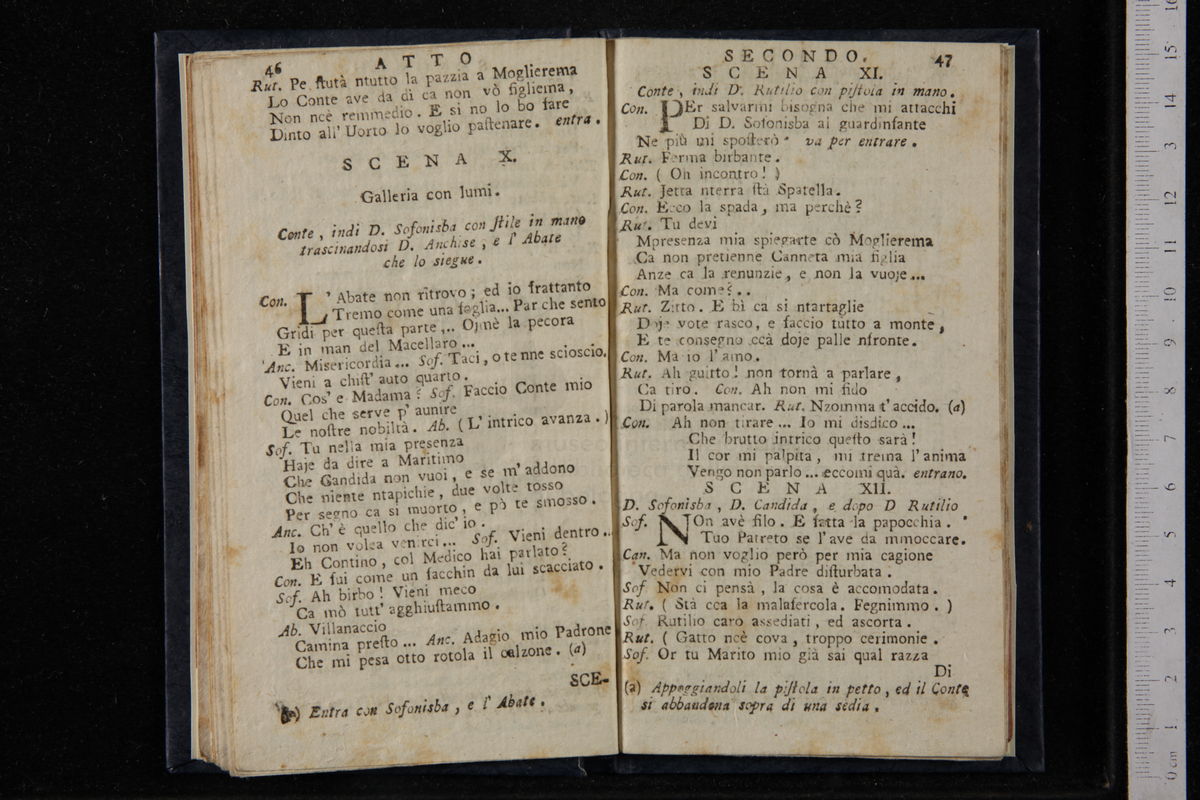 46 ATTO
Rut. Pe ſtutà ntutto la pazzia a Moglierema
Lo Conte ave da dì ca non vò figliema,
Non ncè remmedio. E si no lo bo fare
Dinto all' Uorto lo voglio paſtenare. entra.
SCENA X.
Galleria con lumi.
Conte, indi D. Sofonisba con ſtile in mano
trascinandosi D. Anchise, e l' Abate
che lo siegue.
Con. L' Abate non ritrovo; ed io frattanto
Tremo come una foglia... Par che sento
Gridi per queſta parte,.. Ojmè la pecora
E in man del Macellaro...
Anc. Misericordia... Sof. Taci, o te nne scioscio.
Vieni a chiſt' auto quarto.
Con. Cos' e Madama? Sof. Faccio Conte mio
Quel che serve p' aunire
Le noſtre nobiltà. Ab. (L' intrico avanza.)
Sof. Tu nella mia presenza
Haje da dire a Maritimo
Che Gandida non vuoi, e se m' addono
Che niente ntapichie, due volte tosso
Per segno ca si muorto, e pò te smosso.
Anc. Ch' è quello che dic' io.
Io non volea venirci... Sof. Vieni dentro..
Eh Contino, col Medico hai parlato?
Con. E fui come un facchin da lui scacciato.
Sof. Ah birbo! Vieni meco
Ca mò tutt' agghiuſtammo.
Ab. Villanaccio
Camina preſto... Anc. Adagio mio Padrone
Che mi pesa otto rotola il calzone. (a)
SCE-
(a) Entra con Sofonisba, e l' Abate.
SECONDO. 47
SCENA XI.
Conte, indi D. Rutilio con piſtola in mano.
Con. PEr salvarmi bisogna che mi attacchi
Di D. Sofonisba al guardinfante
Ne più mi spoſterò va per entrare.
Rut. Ferma birbante.
Con. (Oh incontro!)
Rut. Jetta nterra ſtà Spatella.
Con. Ecco la spada, ma perchè?
Rut. Tu devi
Mpresenza mia spiegarte cò Moglierema
Ca non pretienne Canneta mia figlia
Anze ca la renunzie, e non la vuoje...
Con. Ma come?..
Rut. Zitto. E bì ca si ntartaglie
Doje vote rasco, e faccio tutto a monte,
E te consegno ccà doje palle nfronte.
Con. Ma io l' amo.
Rut. Ah guitto! non tornà a parlare,
Ca tiro. Con. Ah non mi fido
Di parola mancar. Rut. Nzomma t' accido. (a)
Con. Ah non tirare... Io mi disdico...
Che brutto intrico queſto sarà!
Il cor mi palpita, mi trema l' anima
Vengo non parlo... eccomi quà. entrano.
SCENA XII.
D. Sofonisba, D. Candida, e dopo D Rutilio
Sof. NOn avè filo. E fatta la papocchia.
Tuo Patreto se l' ave da mmoccare.
Can. Ma non voglio però per mia cagione
Vedervi con mio Padre diſturbata.
Sof Non ci pensà, la cosa è accomodata.
Rut. (Stà cca la malafercola. Fegnimmo.)
Sof. Rutilio caro assediati, ed ascorta.
Rut. (Gatto ncè cova, troppo cerimonie.
Sof. Or tu Marito mio già sai qual razza
Di
(a) Appoggiandoli la piſtola in petto, ed il Conte
si abbandona sopra di una sedia.